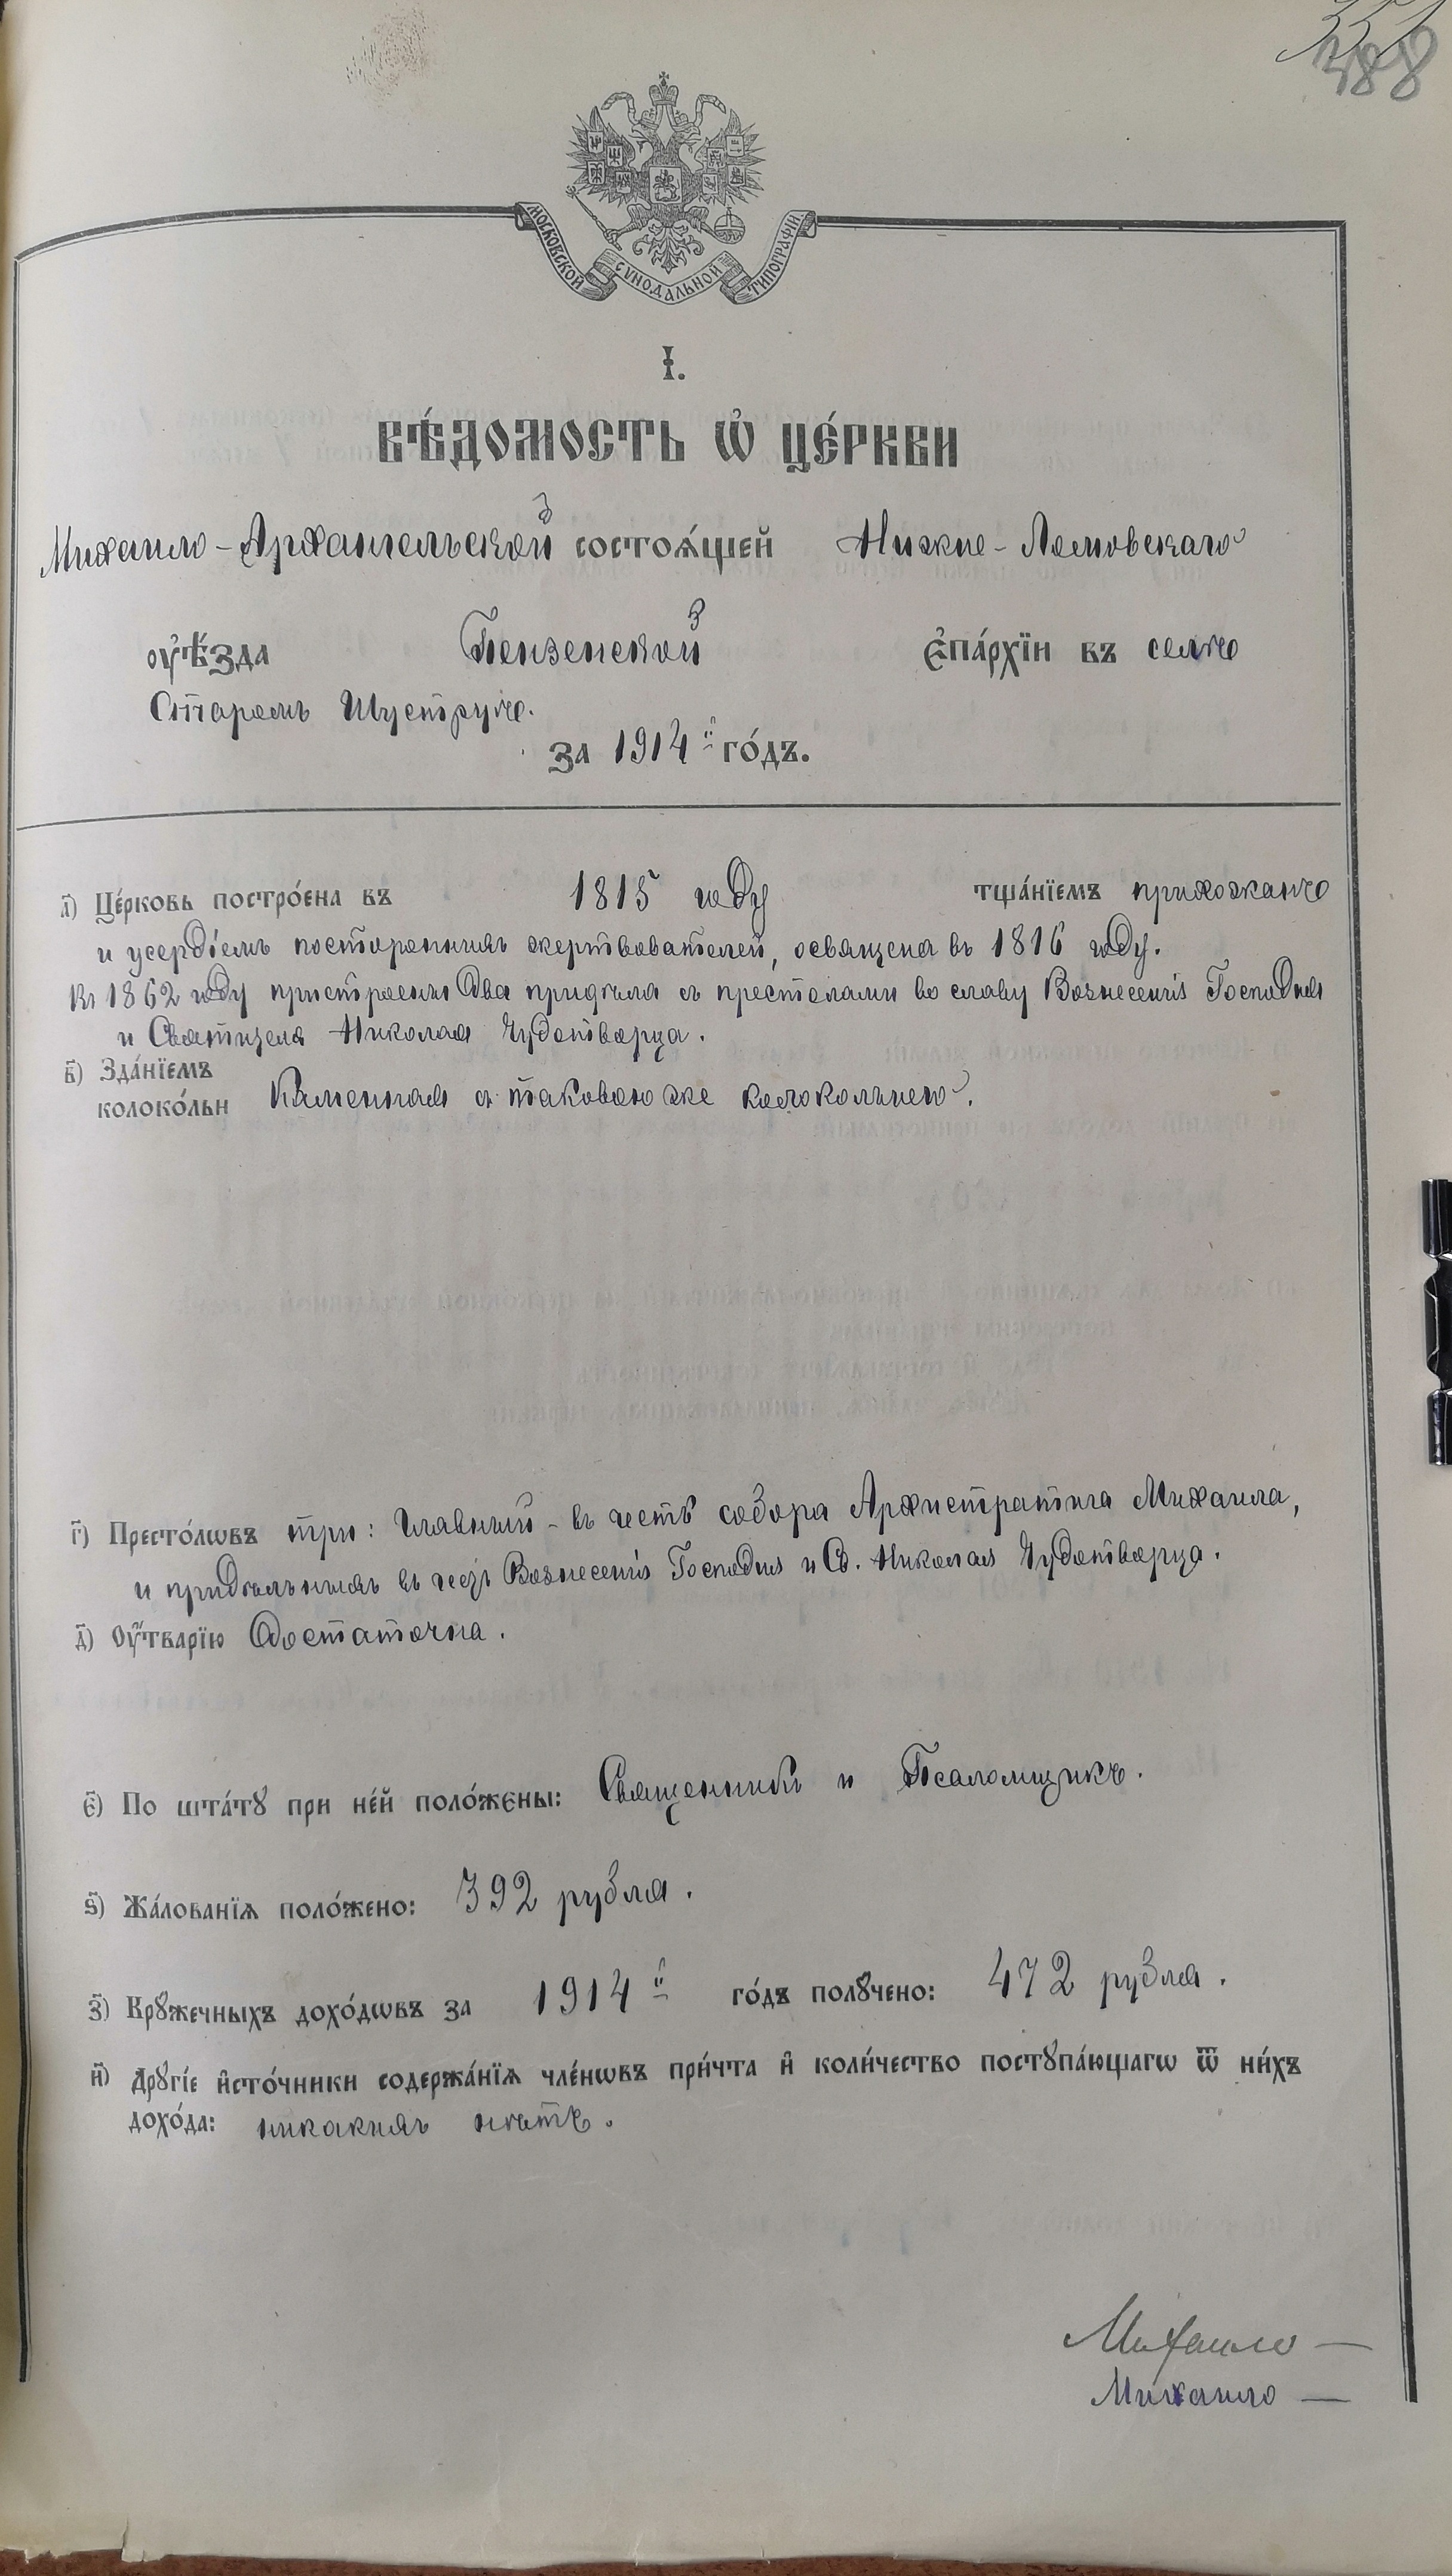 388
МОСКОВСКОЙ СѴНОДАЛЬНОЙ ТИПОГРАФІИ
І.
ВѢ́ДОМОСТЬ Ѡ҆ ЦЕ́РКВИ
Михаило-Архангельской состоѧ́щей Нижне-Ломовскаго
ᲂу҆ѣ́зда Пензенской є҆па́рхїи въ селѣ
Старомъ Шуструѣ.
за 1914й го́дъ.
а҃) Це́рковь постро́ена въ 1815 году тща́нїемъ прихожанъ
и усердіемъ постороннихъ жертвователей, освящена въ 1816 году.
Въ 1862 году пристроены два придѣла съ престолами во славу Вознесенія Господня
и Святителя Николая Чудотворца.
в҃) Зда́нїемъ
колоко́льн Каменная съ таковою же колокольнею.
г҃) Престо́лѡвъ три: Главный - въ честь собора Архистратига Михаила,
и придѣльныхъ въ честь Вознесенія Господня и Св. Николая Чудотворца.
д҃) Оу҆́тварїю достаточна.
є҃) По шта́тꙋ при не́й поло́жєны: Священникъ и Псаломщикъ.
ѕ҃) Жа́лованїѧ поло́жено: 392 рубля.
з҃) Крꙋжечныхъ дохо́дѡвъ за 1914й го́дъ полꙋчено: 472 рубля.
и҃) Дрꙋгі́е и҆сто́чники содержа́нїѧ чле́нѡвъ при́чта и҆ коли́чество постꙋпа́ющагѡ ѿ ни́хъ
дохо́да: никакихъ нѣтъ.
Михаило —
Михаило —